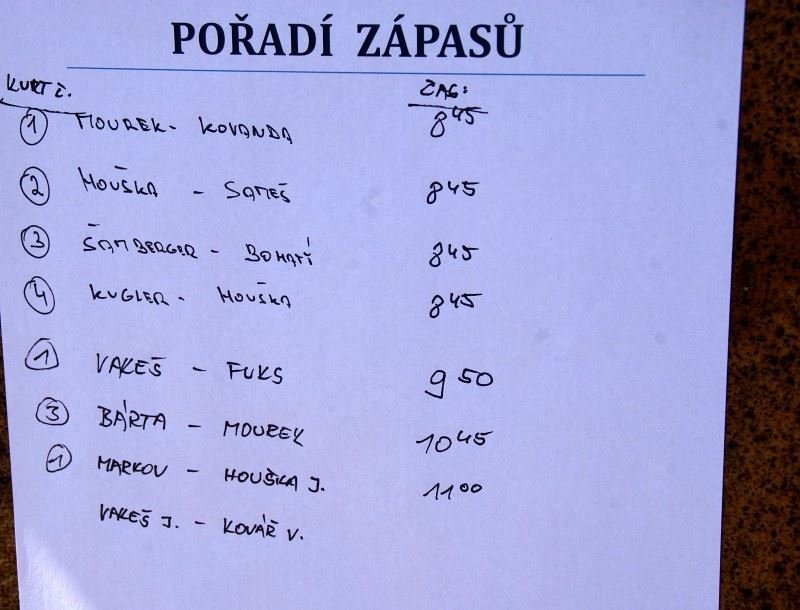 POŘADÍ ZÁPASŮ
KURT Č. ZAČ:
1 MOUREK - KOVANDA 8 45
2 HOUŠKA - SAMEŠ 8 45
3 ŠAMBERGER - 8 45
4 KUGLER - HOUŠKA 8 45
1 VALEŠ - FUKS 9 50
3 BÁRTA - MOUREK 10 45
1 MARKOV - HOUŠKA J. 11 00
VALEŠ J. - KOVÁŘ V.